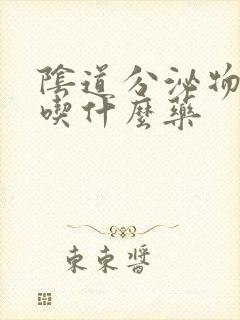 陰道分泌物
喫什麼藥
束束醬